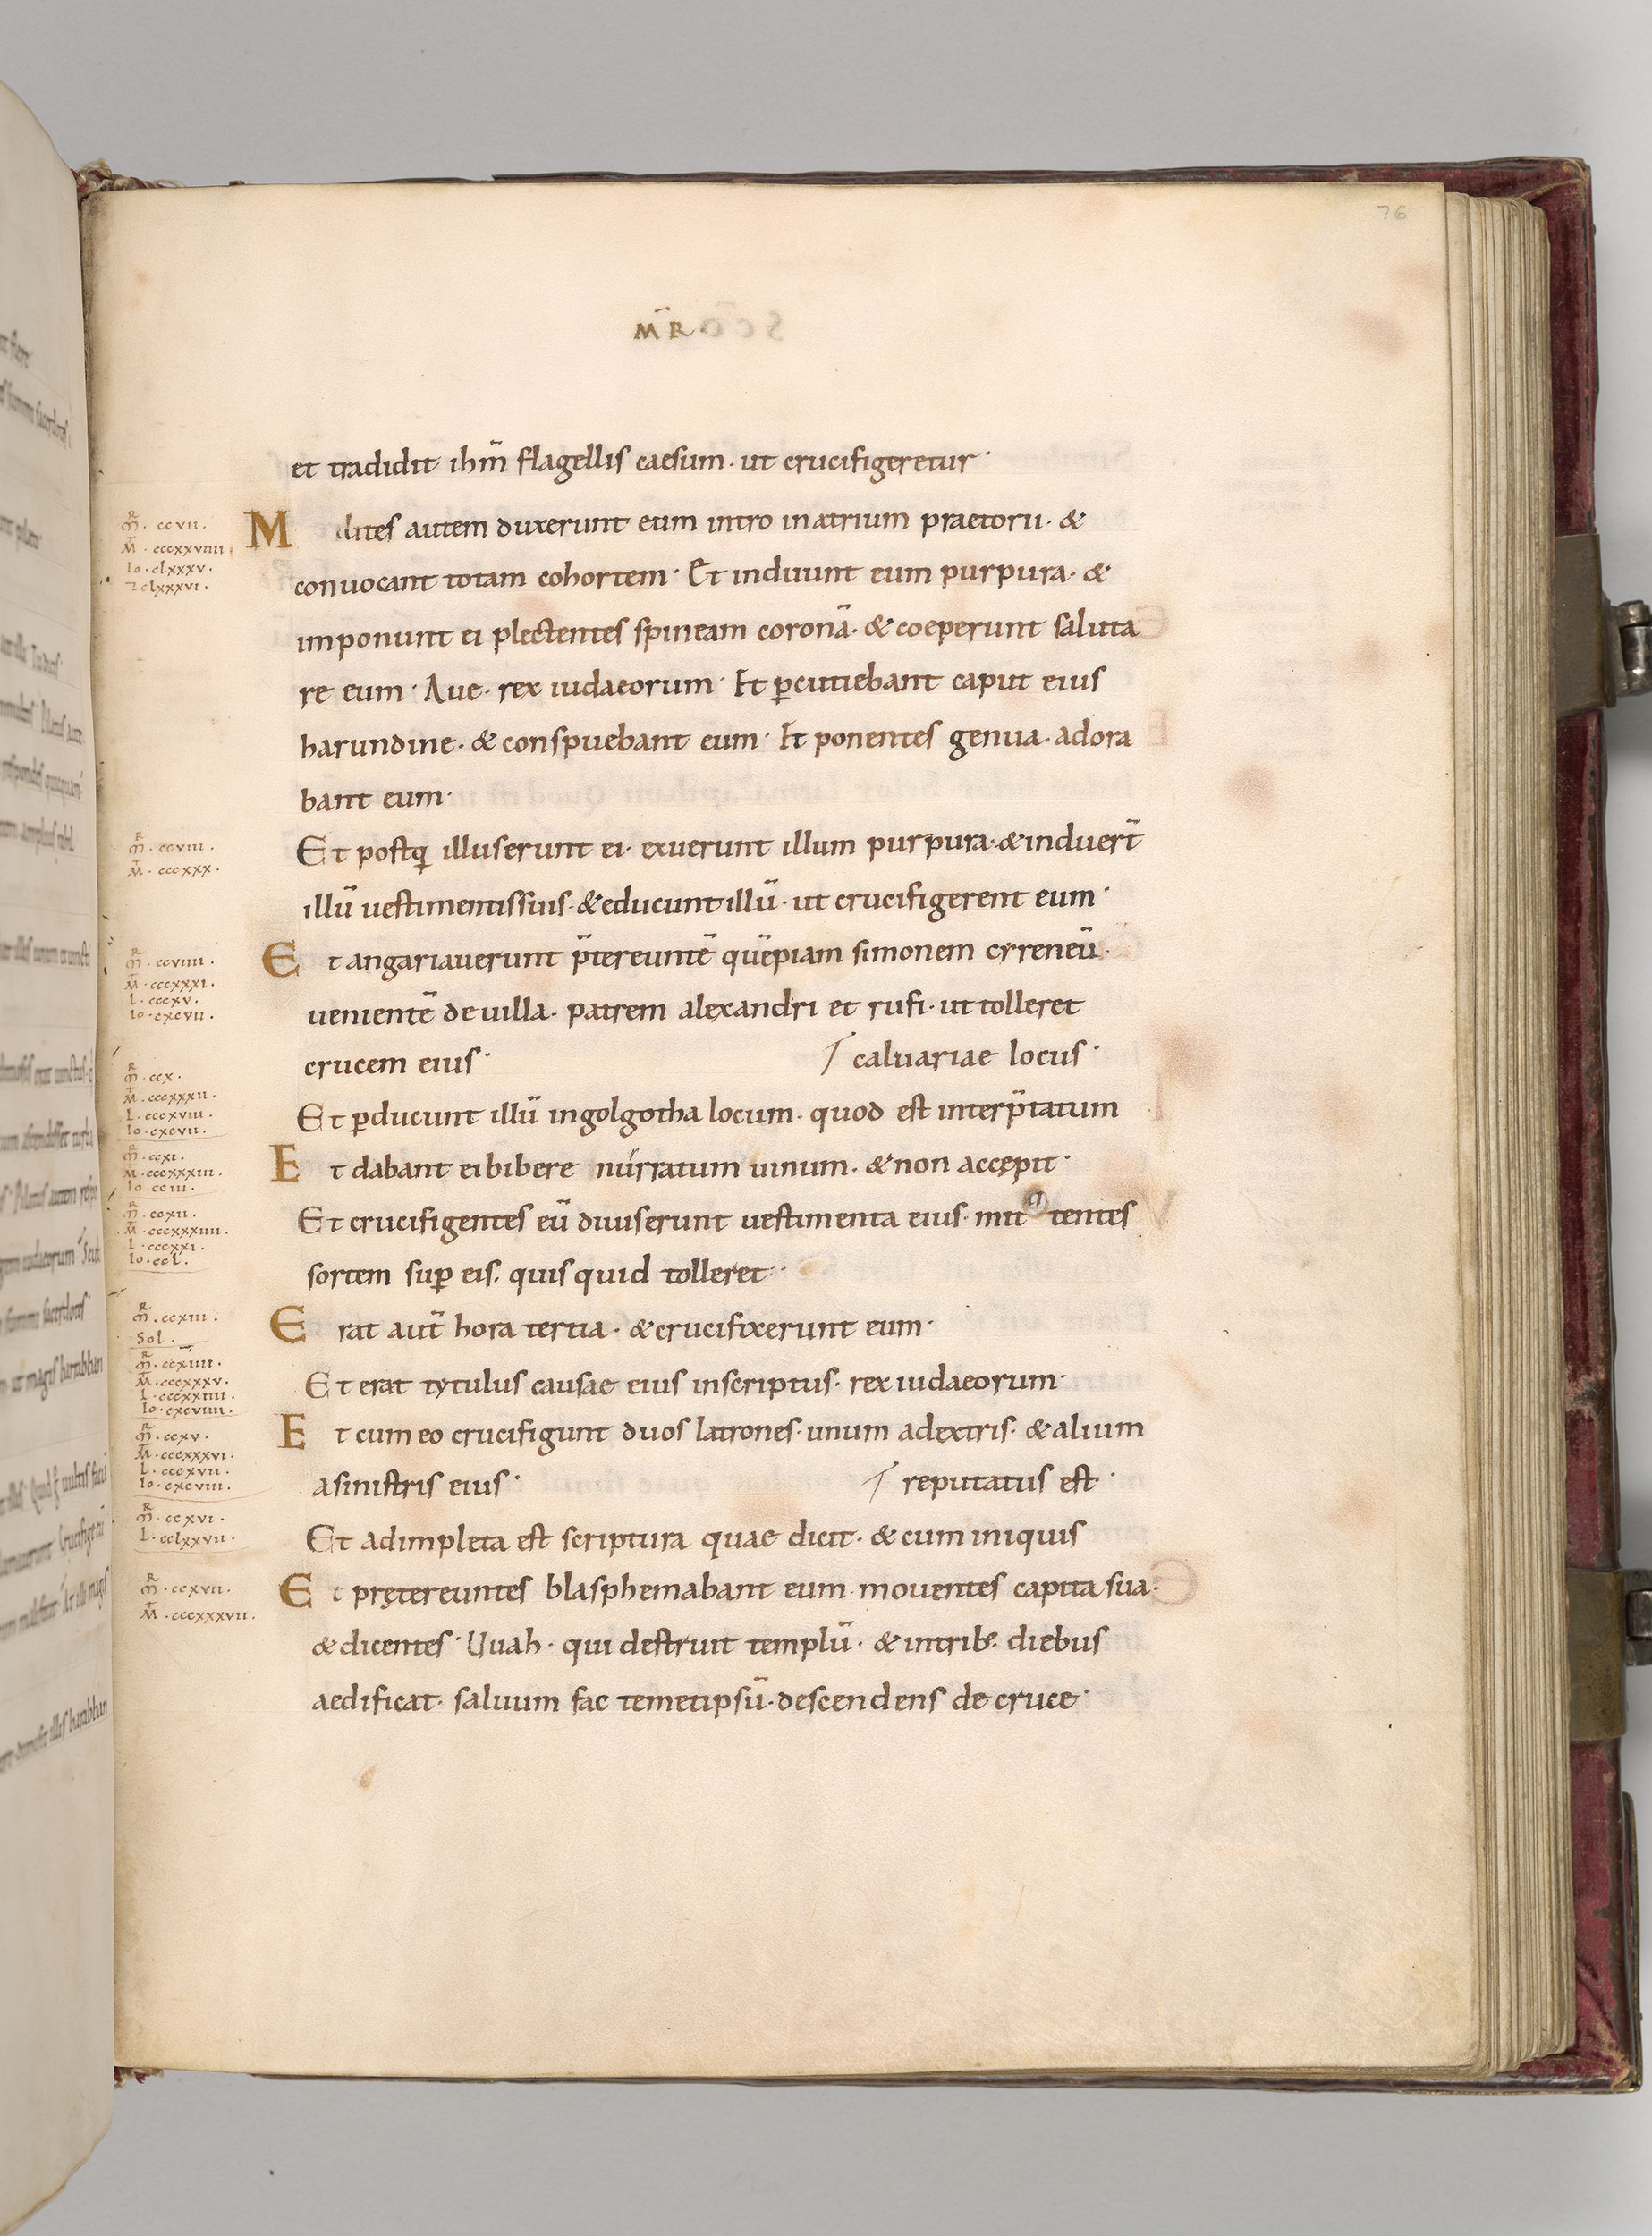 76
M̄R̄
et tradidit ihm̄ flagellis caesum · ut crucifigeretur ·
Milites autem duxerunt eum intro inatrium praetorii · &
conuocant totam cohortem · Et induunt eum purpura · &
imponunt ei plectentes spineam coronā · & coeperunt saluta
re eum · Aue · rex iudaeorum · Et ꝑcutiebant caput eius
harundine · & conspuebant eum · Et ponentes genua · adora
bant eum ·
Et postꝗ illuserunt ei · exuerunt illum purpura · & induert̄
illū uestimentissuis · & educunt illū · ut crucifigerent eum ·
Et angariauerunt p̄tereuntē quēpiam simonem cyreneū ·
uenientē de uilla · patrem alexandri et rufi · ut tolleret
crucem eius · / caluariae locus ·
Et ꝑducunt illū ingolgotha locum · quod est interp̄tatum
Et dabant ei bibere mirratum uinum · & non accepit ·
Et crucifigentes eū diuiserunt uestimenta eius · mittentes
sortem suꝑ eis · quis quid tolleret ·
Erat aut̄ hora tertia · & crucifixerunt eum ·
Et erat tytulus causae eius inscriptus · rex iudaeorum ·
Et cum eo crucifigunt duos latrones · unum adextris · & alium
asinistris eius · / reputatus est ·
Et adimpleta est scriptura quae dicit · & cum iniquis
Et prętereuntes blasphemabant eum · mouentes capita sua ·
& dicentes · Uuah · qui destruit templū · & intrib; diebus
aedificat · saluum fac temetipsū · descendens de cruce ·
M̄R · ccvii ·
M̄ · cccxxviiii ·
Io · clxxxv ·
⁊ clxxxvi ·
M̄R · ccviii ·
M̄ · cccxxx ·
M̄R · ccviiii ·
M̄ · cccxxxi ·
L · cccxv ·
Io · cxcvii ·
M̄R · ccx ·
M̄ · cccxxxii ·
L · cccxviii ·
Io · cxcvii ·
M̄R · ccxi ·
M̄ · cccxxxiii ·
Io · cciii ·
M̄R · ccxii ·
M̄ · cccxxxiiii ·
L · cccxxi ·
Io · ccl ·
M̄R · ccxiii ·
Sol ·
M̄R · ccxiiii ·
M̄ · cccxxxv ·
L · cccxxiiii ·
Io · cxcviiii ·
M̄R · ccxv ·
M̄ · cccxxxvi ·
L · cccxvii ·
Io · cxcviii ·
M̄R · ccxvi ·
L · cclxxvii ·
M̄R · ccxvii ·
M̄ · cccxxxvii ·